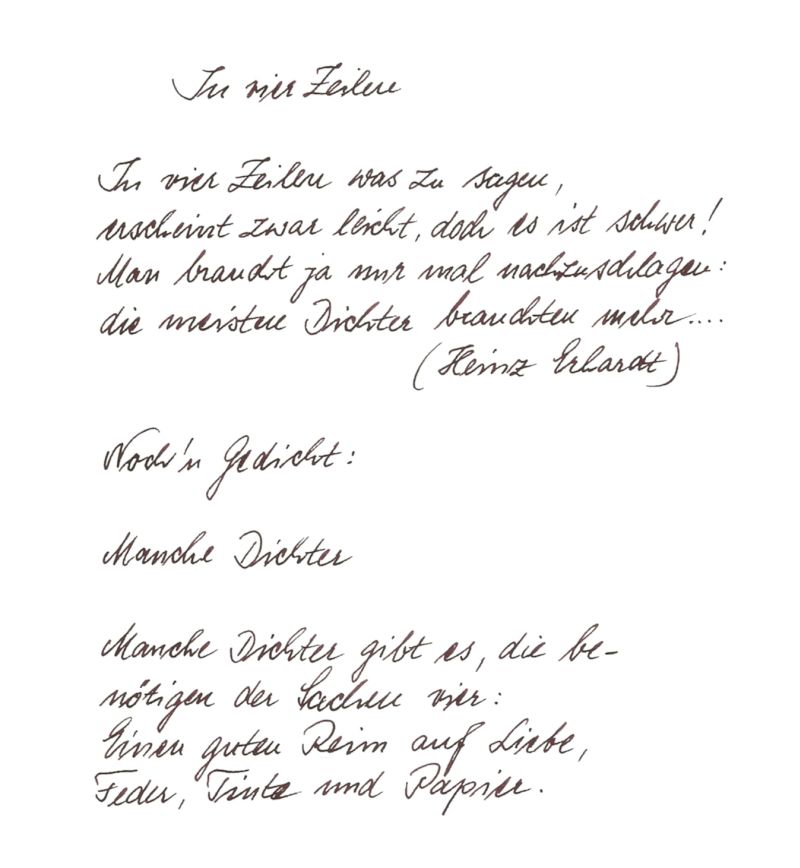 In vier Zeilen
In vier Zeilen was zu sagen,
erscheint zwar leicht, doch es ist schwer!
Man braucht ja nur mal nachzuschlagen:
die meisten Dichter brauchten mehr....
(Heinz Erhardt)
Noch'n Gedicht:
Manche Dichter
Manche Dichter gibt es, die be-
nötigen der Sachen vier:
Einen guten Reim auf Liebe,
Feder, Tinte und Papier.